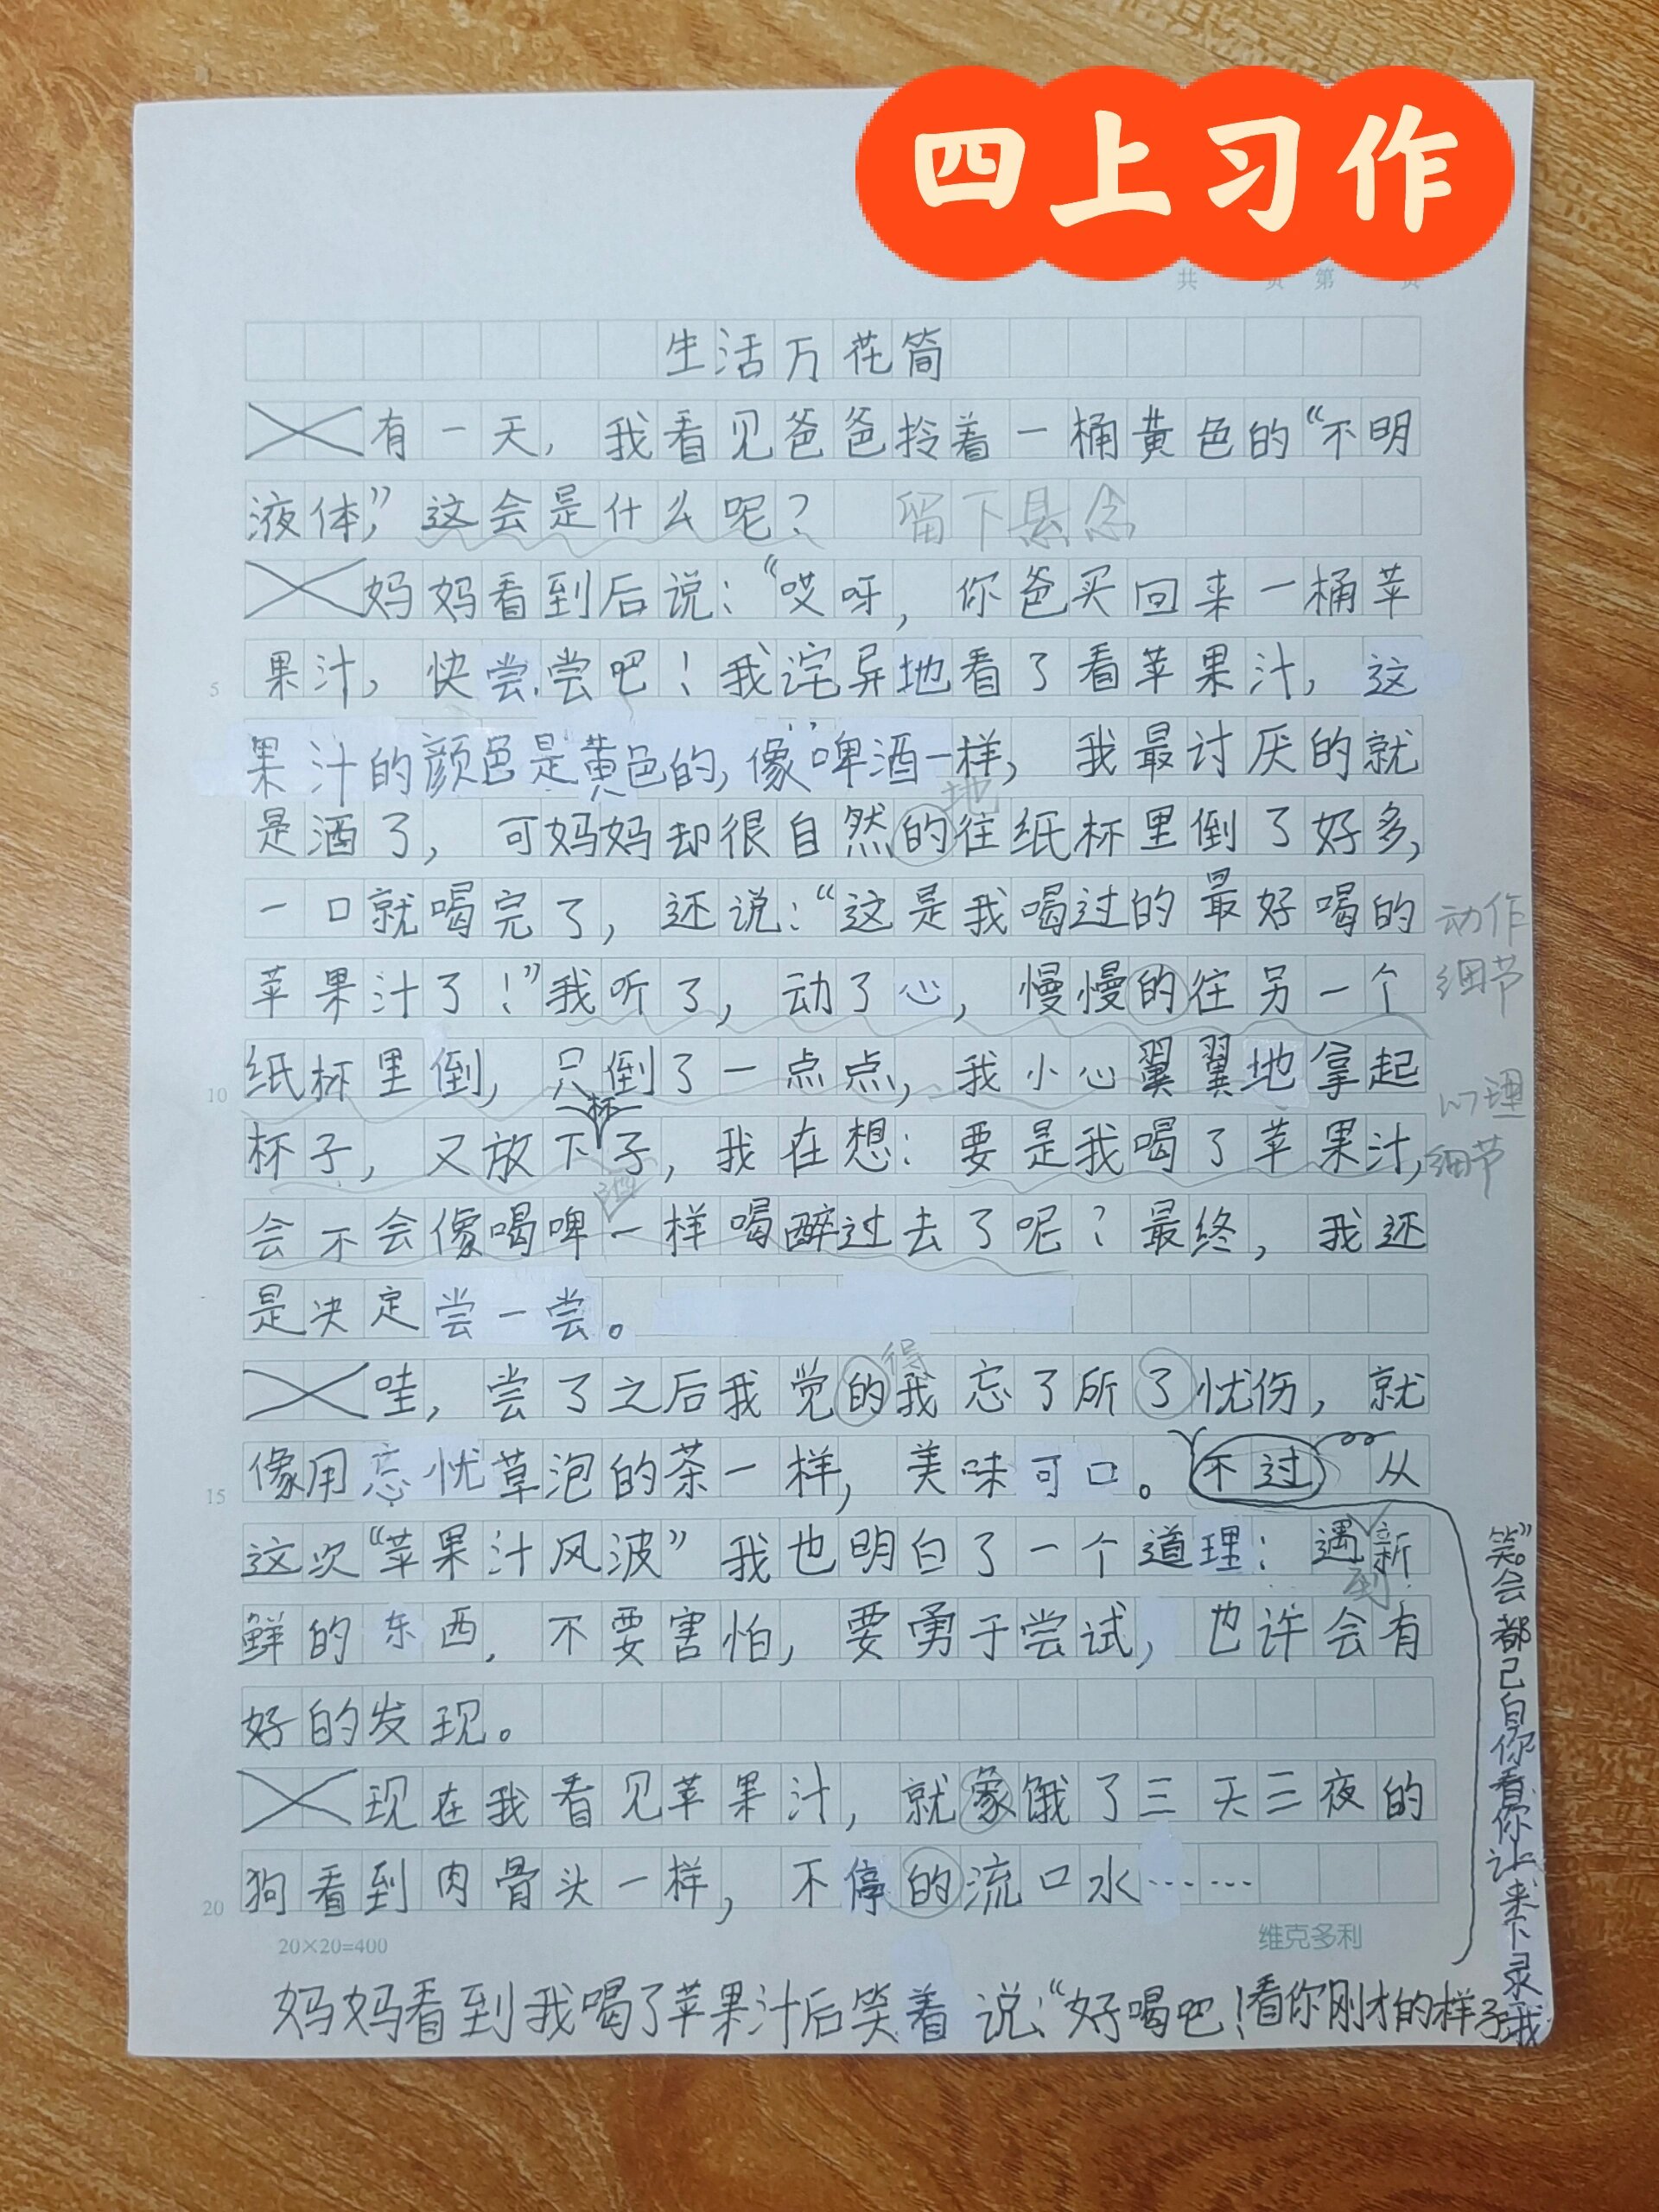 四上习作
共 页 第 页
生活万花筒
有一天，我看见爸爸拎着一桶黄色的“不明
液体”，这会是什么呢？ 留下悬念
妈妈看到后说：“哎呀，你爸买回来一桶苹
5 果汁，快尝尝吧！我诧异地看了看苹果汁，这
果汁的颜色是黄色的，像啤酒一样，我最讨厌的就
地
是酒了，可妈妈却很自然的往纸杯里倒了好多，
一口就喝完了，还说：“这是我喝过的最好喝的 动作
苹果汁了！”我听了，动了心，慢慢的往另一个 细节
10 纸杯里倒，只倒了一点点，我小心翼翼地拿起 心理
杯
杯子，又放下子，我在想：要是我喝了苹果汁， 细节
酒
会不会像喝啤一样喝醉过去了呢？最终，我还
是决定尝一尝。
得
哇，尝了之后我觉的我忘了所了忧伤，就
15 像用忘忧草泡的茶一样，美味可口。不过从
这次“苹果汁风波”我也明白了一个道理：遇新
到
鲜的东西，不要害怕，要勇于尝试，也许会有
好的发现。
现在我看见苹果汁，就象饿了三天三夜的
20 狗看到肉骨头一样，不停的流口水……
20×20=400 维克多利
妈妈看到我喝了苹果汁后笑着说：“好喝吧！看你刚才的样子我
录下来让你看看你自己都会笑。”